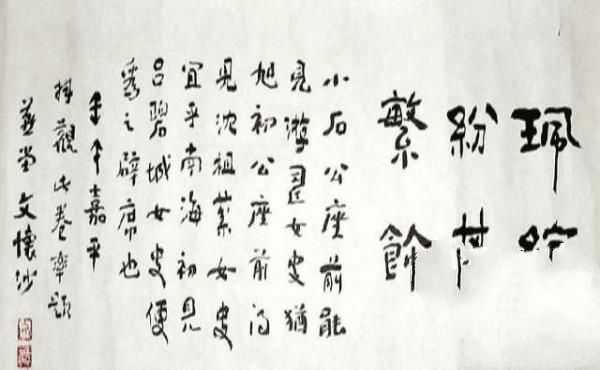 珮
紛
繁飾
小石公座前能
見游女史猶
旭初公座前得
見沈祖棻女史
宜乎南海初見
呂碧城女史便
為之辟席也
壬午嘉平
拜觀此卷率題
燕堂文懷沙